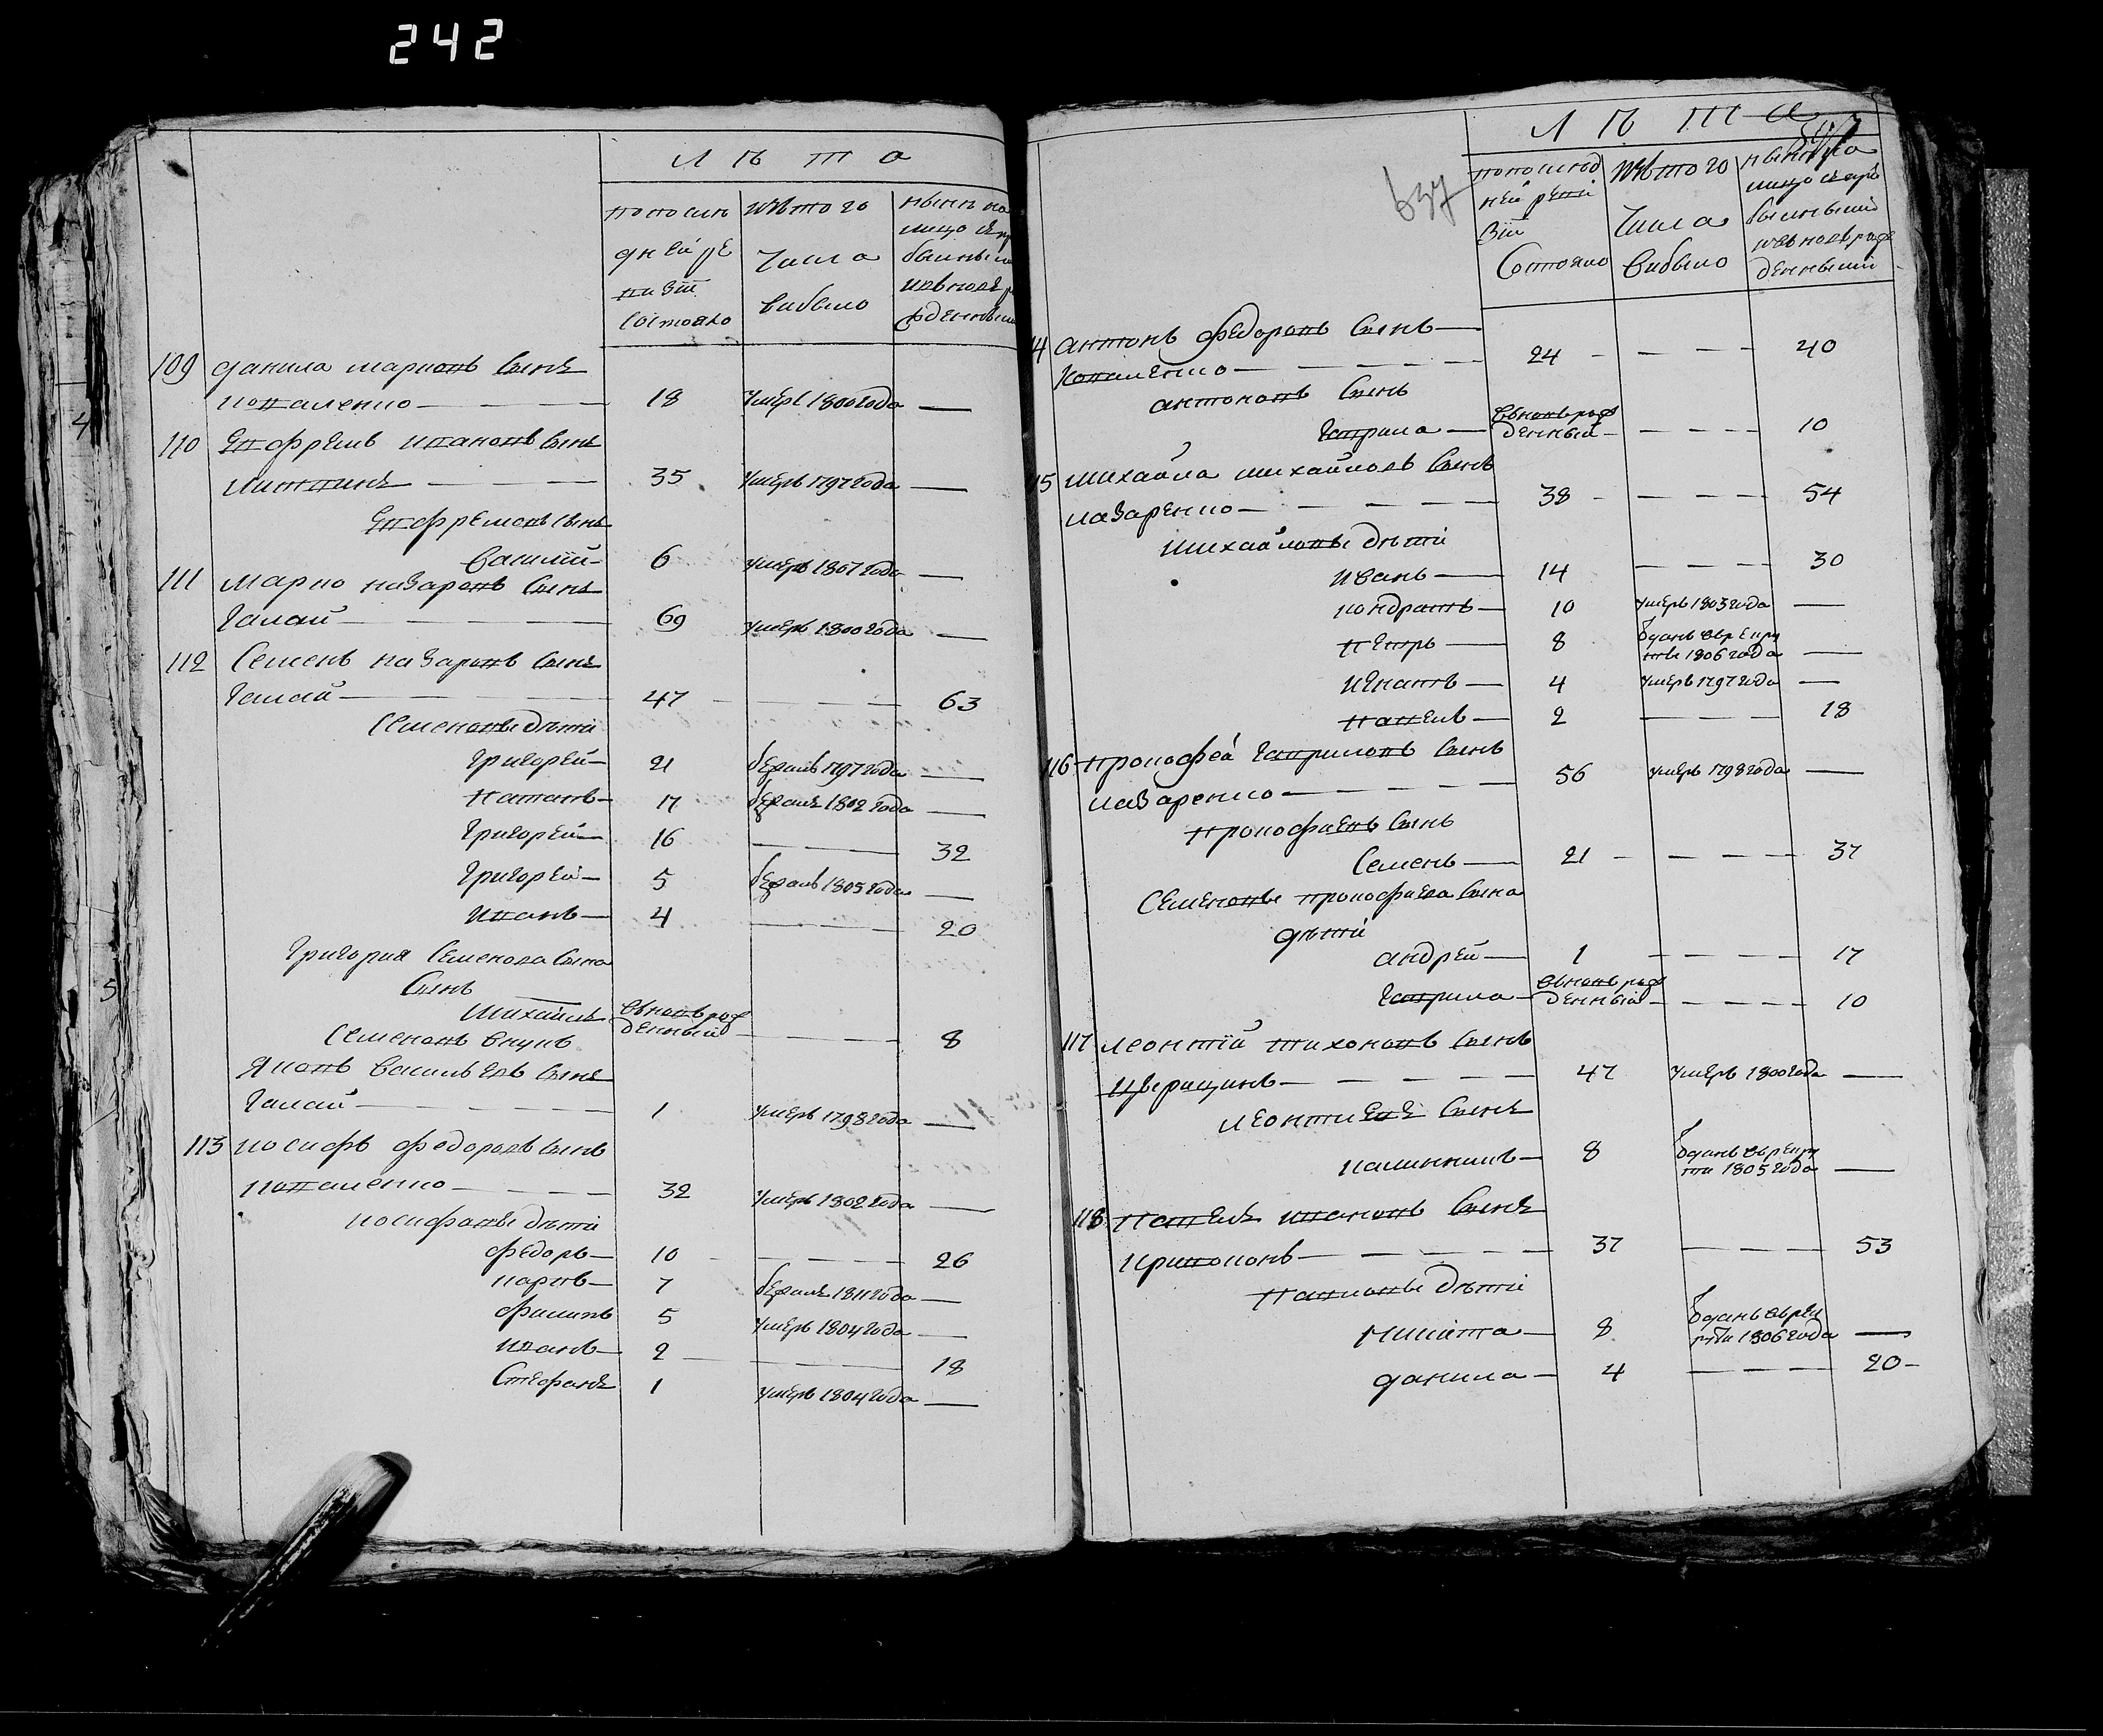 242
Л ѣ т а
по послѣ
дней ре
визіи
состояло
изъ того
числа
выбыло
нынѣ на
лицо съ
109 Данила Марковъ сынъ
Коваленко — 18 умеръ 1800 года —
110 Ефремъ Ивановъ сынъ
Литвинъ — 35 умеръ 1797 года —
Ефремовъ сынъ
Василій — 6 умеръ 1807 года —
111 Марко Назаровъ сынъ
Галай — 69 умеръ 1800 года —
112 Семенъ Назаровъ сынъ
Галай — 47 — 63
Семеновы дѣти
Григорей — 21 бежалъ 1797 года —
17 бежалъ 1802 года —
Григорей — 16 — 32
Григорей — 5 бежалъ 1805 года —
Иванъ — 4 — 20
Григория Семенова сына
сынъ
Михайла вновь рож
денный — 8
Семеновъ внукъ
Яковъ Васильевъ сынъ
Галай — 1 умеръ 1798 года —
113 Иосифъ Федоровъ сынъ
Коваленко — 32 умеръ 1802 года —
Иосифовы дѣти
Федоръ — 10 — 26
Карпъ — 7 бежалъ 1811 года —
Филипъ 5 умеръ 1804 года —
Иванъ — 2 — 18
Стефанъ 1 умеръ 1804 года —
637
Л ѣ т а
по послѣд
ней реви
зіи
состояло
изъ того
числа
выбыло
нынѣ на
лицо съ
денными
4 Антонъ Федоровъ сынъ —
Коваленко — 24 — 40
Антоновъ сынъ
Гаврила — вновь рож
денный — 10
15 Михайла Михайловъ сынъ
Лазаренко — 38 — 54
Михайловы дѣти
Иванъ — 14 — 30
Кондратъ — 10 умеръ 1803 года —
Петръ — 8 отданъ в рекру
ты 1806 года —
Игнатъ — 4 умеръ 1797 года —
Павелъ — 2 — 18
116 Прокофей Гавриловъ сынъ
Лазаренко — 56 умеръ 1798 года —
Прокофиевъ сынъ
Семенъ — 21 — 37
Семеновы Прокофиева сына
дѣти
Андрей — 1 — 17
Гаврила — вновь рож
денный — 10
117 Леонтій Тихоновъ сынъ
47 умеръ 1800 года —
Леонтиевъ сынъ
8 отданъ в рекру
ты 1805 года —
118 Павелъ Ивановъ сынъ
37 — 53
Павловы дѣти
Никита — 8 отданъ в рек
руты 1806 года —
Данила — 4 — 20 -